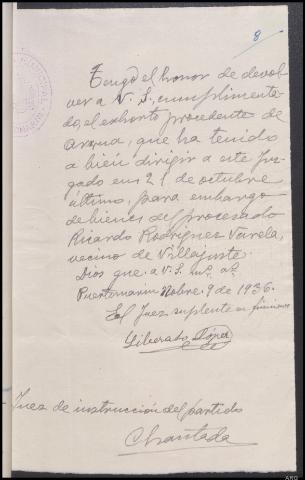 8
Tengo el honor de devol-
ver a V. S., cumplimenta-
do, el exhorto procedente de
Arzua, que ha tenido
a bien dirigir a este Juz-
gado en 21 de octubre
último, para embargo
de bienes del procesado
Ricardo Rodriguez Varela,
vecino de Villajuste.
Dios que a V. S. ms. as.
Puertomarin Nobre. 9 de 1936.
El Juez suplente en funciones
Liberado López
Juez de instrucción del partido
Chantada